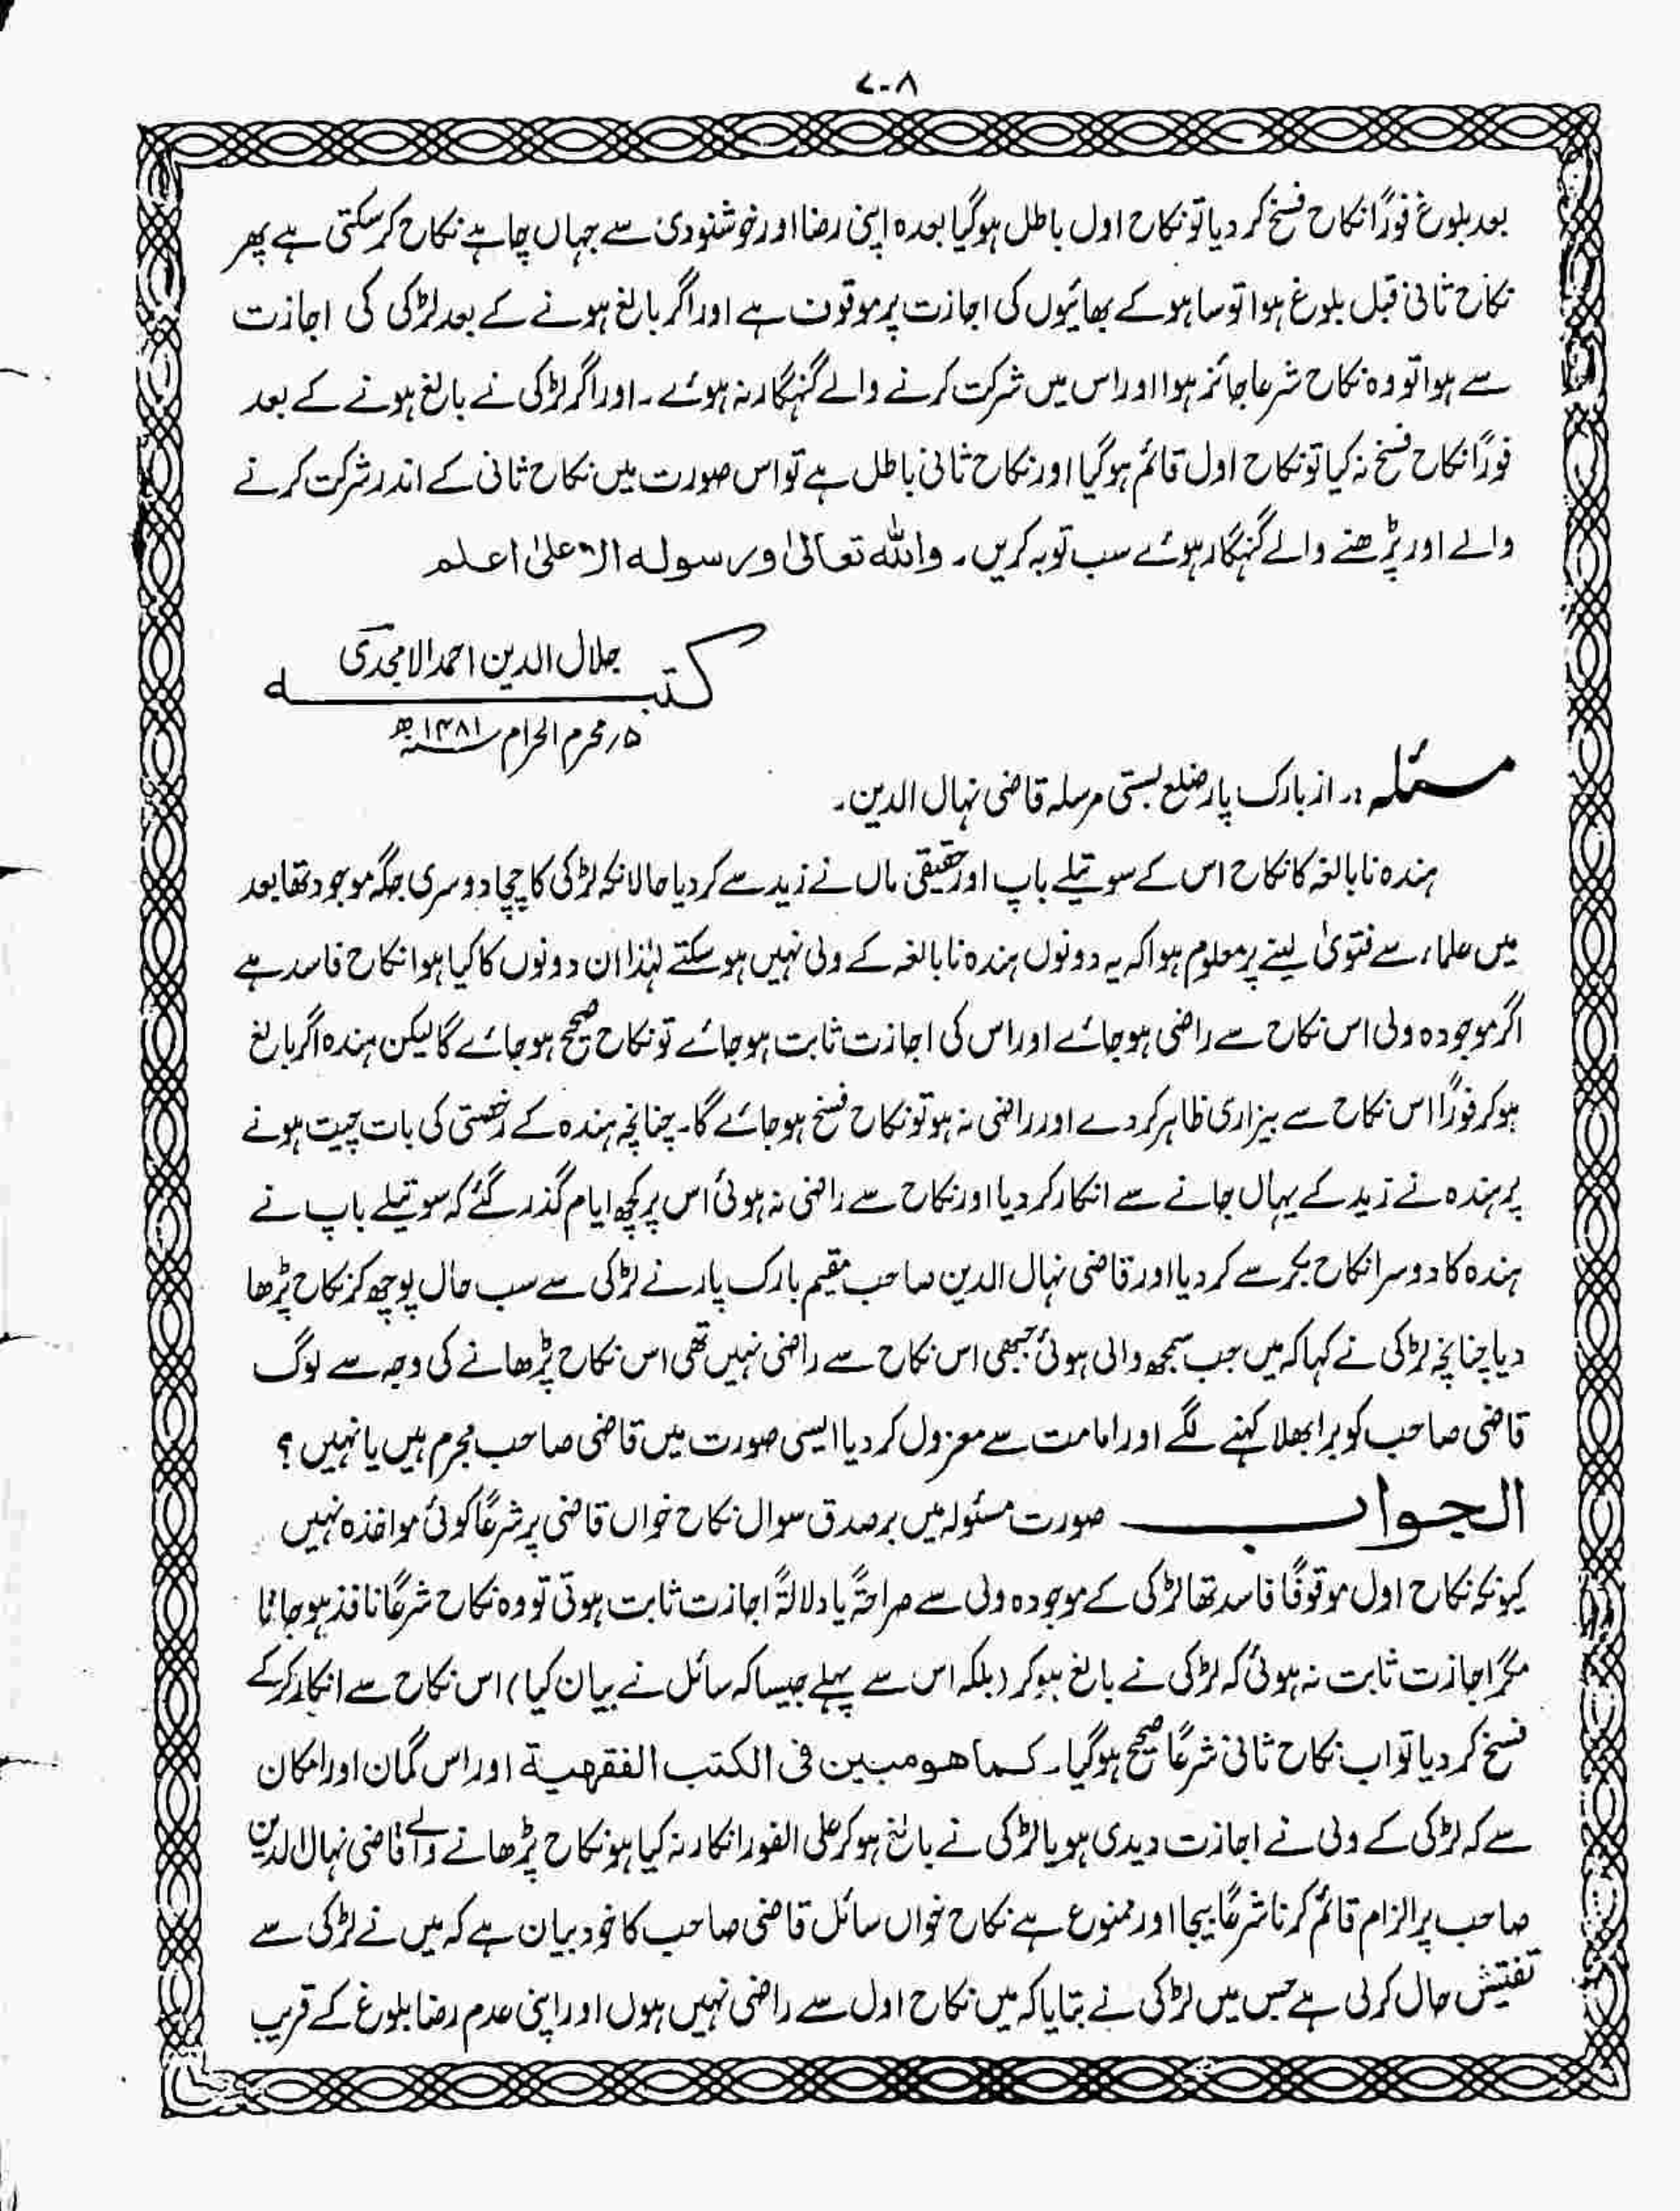 ۷۰۸
بعد بلوغ فوراً نکاح فسخ کر دیا تو نکاح اول باطل ہوگیا بعدہ اپنی رضا اور خوشنودی سے جہاں چاہے نکاح کر سکتی ہے پھر
نکاح ثانی قبل بلوغ ہوا تو ساہو کے بھائیوں کی اجازت پر موقوف ہے اور اگر بالغ ہونے کے بعد لڑکی کی اجازت
سے ہوا تو وہ نکاح شرعا جائز ہوا اور اس میں شرکت کرنے والے گنہگار نہ ہوئے ۔ اور اگر لڑکی نے بالغ ہونے کے بعد
فوراً نکاح فسخ نہ کیا تو نکاح اول قائم ہوگیا اور نکاح ثانی باطل ہے تو اس صورت میں نکاح ثانی کے اندر شرکت کرنے
والے اور پڑھنے والے گنہگار ہوئے سب توبہ کریں ۔ واللہ تعالیٰ ورسولہ الاعلیٰ اعلم
جلال الدین احمد الامجدی
کتبہ
۵؍ محرم الحرام سنہ ۱۳۸۱ھ
مسئلہ :۔ از بارک پار ضلع بستی مرسلہ قاضی نہال الدین ۔
ہندہ نابالغہ کا نکاح اس کے سوتیلے باپ اور حقیقی ماں نے زید سے کر دیا حالانکہ لڑکی کا چچا دوسری جگہ موجود تھا بعد
میں علماء سے فتویٰ لینے پر معلوم ہوا کہ یہ دونوں ہندہ نابالغہ کے ولی نہیں ہو سکتے لہٰذا ان دونوں کا کیا ہوا نکاح فاسد ہے
اگر موجودہ ولی اس نکاح سے راضی ہو جائے اور اس کی اجازت ثابت ہو جائے تو نکاح صحیح ہو جائے گا لیکن ہندہ اگر بالغ
ہو کر فوراً اس نکاح سے بیزاری ظاہر کر دے اور راضی نہ ہو تو نکاح فسخ ہو جائے گا ۔ چنانچہ ہندہ کے رخصتی کی بات چیت ہونے
پر ہندہ نے زید کے یہاں جانے سے انکار کر دیا اور نکاح سے راضی نہ ہوئی اس پر کچھ ایام گذر گئے کہ سوتیلے باپ نے
ہندہ کا دوسرا نکاح بکر سے کر دیا اور قاضی نہال الدین صاحب مقیم بارک پار نے لڑکی سے سب حال پوچھ کر نکاح پڑھا
دیا چنانچہ لڑکی نے کہا کہ میں جب سمجھ والی ہوئی جبھی اس نکاح سے راضی نہیں تھی اس نکاح پڑھانے کی وجہ سے لوگ
قاضی صاحب کو برا بھلا کہنے لگے اور امامت سے معزول کر دیا ایسی صورت میں قاضی صاحب مجرم ہیں یا نہیں ؟
الجواب صورت مسئولہ میں بر صدق سوال نکاح خواں قاضی پر شرعاً کوئی مواخذہ نہیں
کیونکہ نکاح اول موقوفاً فاسد تھا لڑکی کے موجودہ ولی سے صراحۃً یا دلالۃً اجازت ثابت ہوتی تو وہ نکاح شرعاً نافذ ہو جاتا
مگر اجازت ثابت نہ ہوئی کہ لڑکی نے بالغ ہو کر (بلکہ اس سے پہلے جیسا کہ سائل نے بیان کیا) اس نکاح سے انکار کر کے
فسخ کر دیا تو اب نکاح ثانی شرعاً صحیح ہوگیا ۔ کما هو مبین فی الکتب الفقهیة اور اس گمان اور امکان
سے کہ لڑکی کے ولی نے اجازت دیدی ہو یا لڑکی نے بالغ ہو کر علی الفور انکار نہ کیا ہو نکاح پڑھانے والے قاضی نہال الدین
صاحب پر الزام قائم کرنا شرعاً بیجا اور ممنوع ہے نکاح خواں سائل قاضی صاحب کا خود بیان ہے کہ میں نے لڑکی سے
تفتیش حال کر لی ہے جس میں لڑکی نے بتایا کہ میں نکاح اول سے راضی نہیں ہوں اور اپنی عدم رضا بلوغ کے قریب